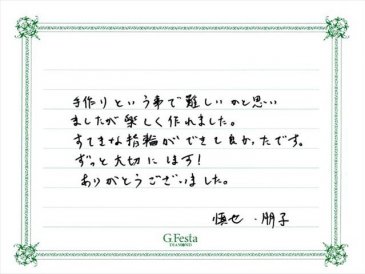 手作りという事で難しいのと思い
ましたが楽しく作れました。
すてきな指輪ができて良かったです。
ずっと大切にします!
ありがとうございました。
慎也・朋子
G.Festa
DIAMOND